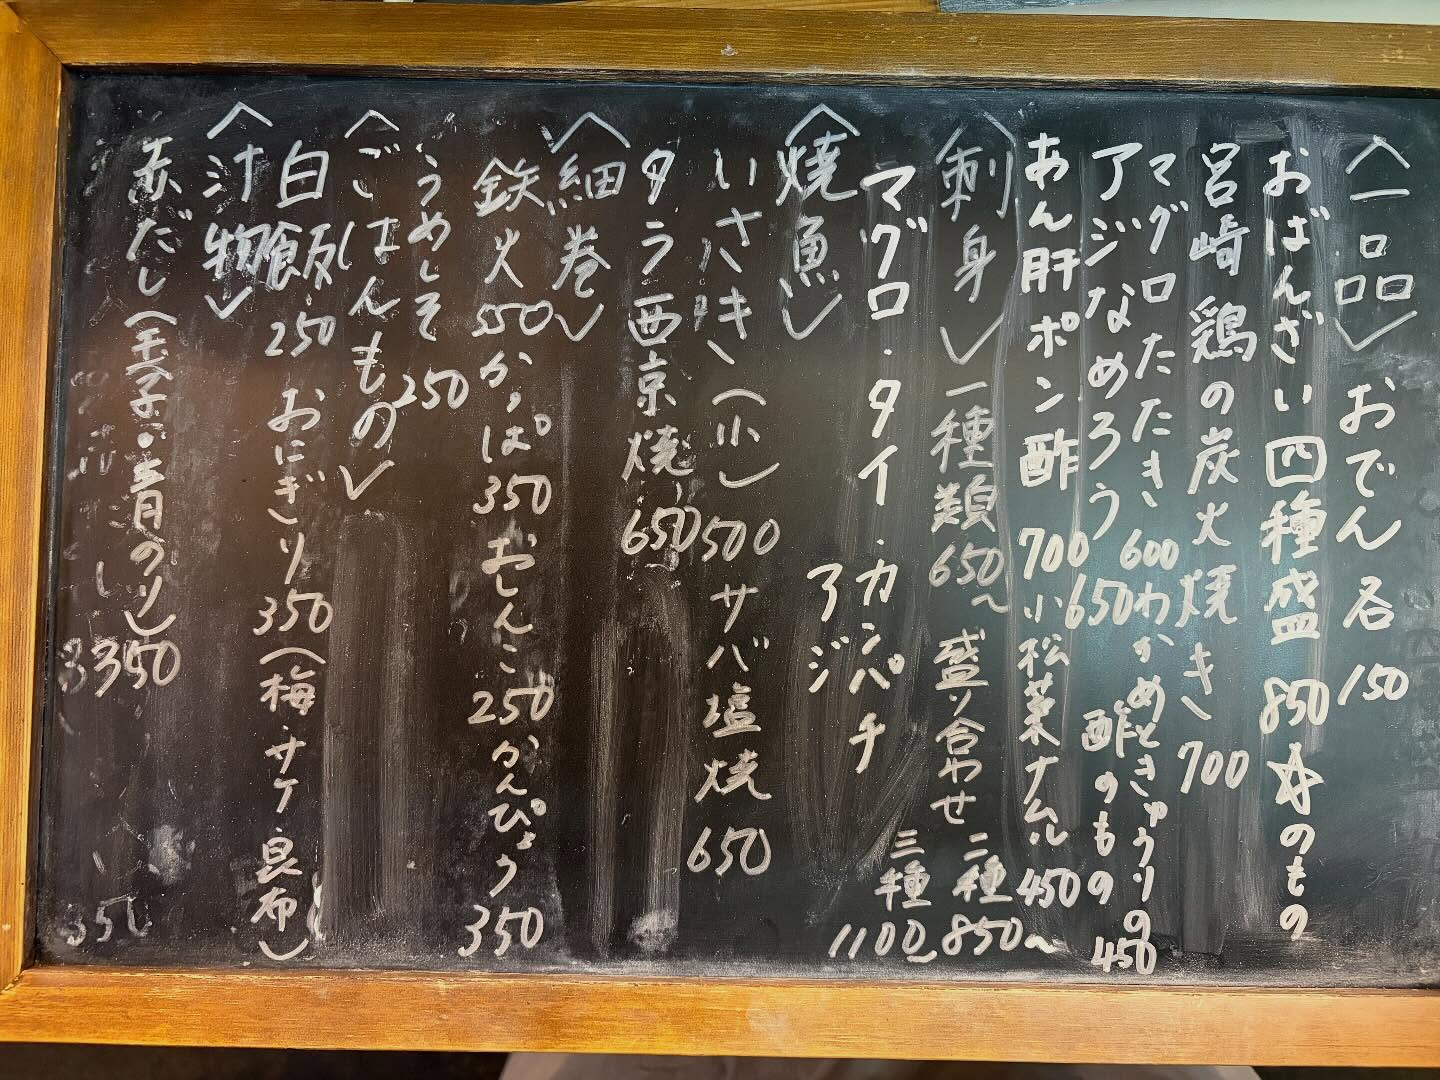 〈一品〉 おでん 各 150
おばんざい四種盛 850 ☆のもの
宮崎鶏の炭火焼き 700
マグロたたき 600 わかめときゅうりの
酢のもの 450
アジなめろう 650
あん肝ポン酢 700 小松菜ナムル 450
〈刺身〉 一種類 650〜 盛り合わせ 二種 850〜
三種 1100〜
マグロ・タイ・カンパチ
アジ
〈焼魚〉
いさき(小) 500 サバ塩焼 650
タラ西京焼 650
〈細巻〉
鉄火 550 かっぱ 350 おしんこ 250 かんぴょう 350
うめしそ 250
〈ごはんもの〉
白飯 250 おにぎり 350 (梅・サケ・昆布)
〈汁物〉
赤だし(玉子・青のり) 350